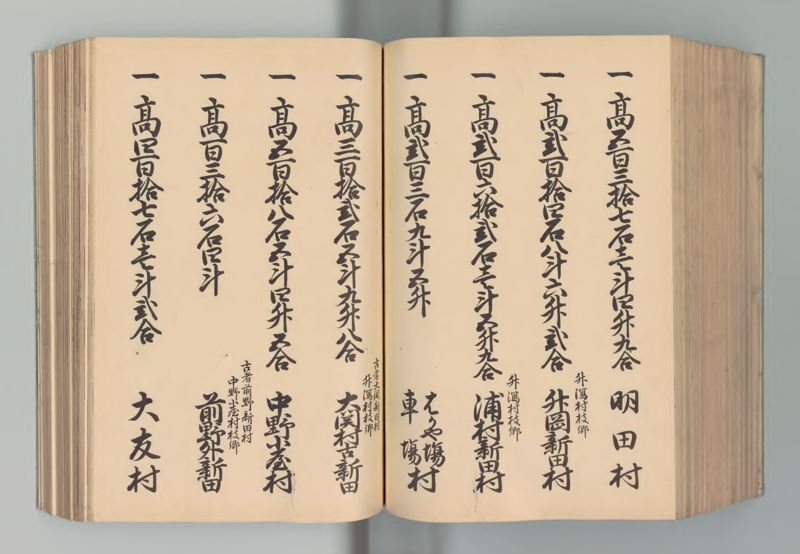 一 高五百三拾七石壱斗四升九合 明田村
一 高弐百拾四石八斗六升弐合 外潟村枝郷 外岡新田村
一 高弐百六拾弐石壱斗五升九合 外潟村枝郷 浦村新田村
一 高弐百三石九斗五升 車塲村 くるや塲
一 高三百拾弐石五斗九升八合 古者大関新田村 外潟村枝郷 大関村古新田
一 高五百拾八石五斗四升五合 中野小屋村
一 高百三拾六石四斗 古者前野新田村 中野小屋村枝郷 前野外新田
一 高四百拾七石壱斗弐合 大友村